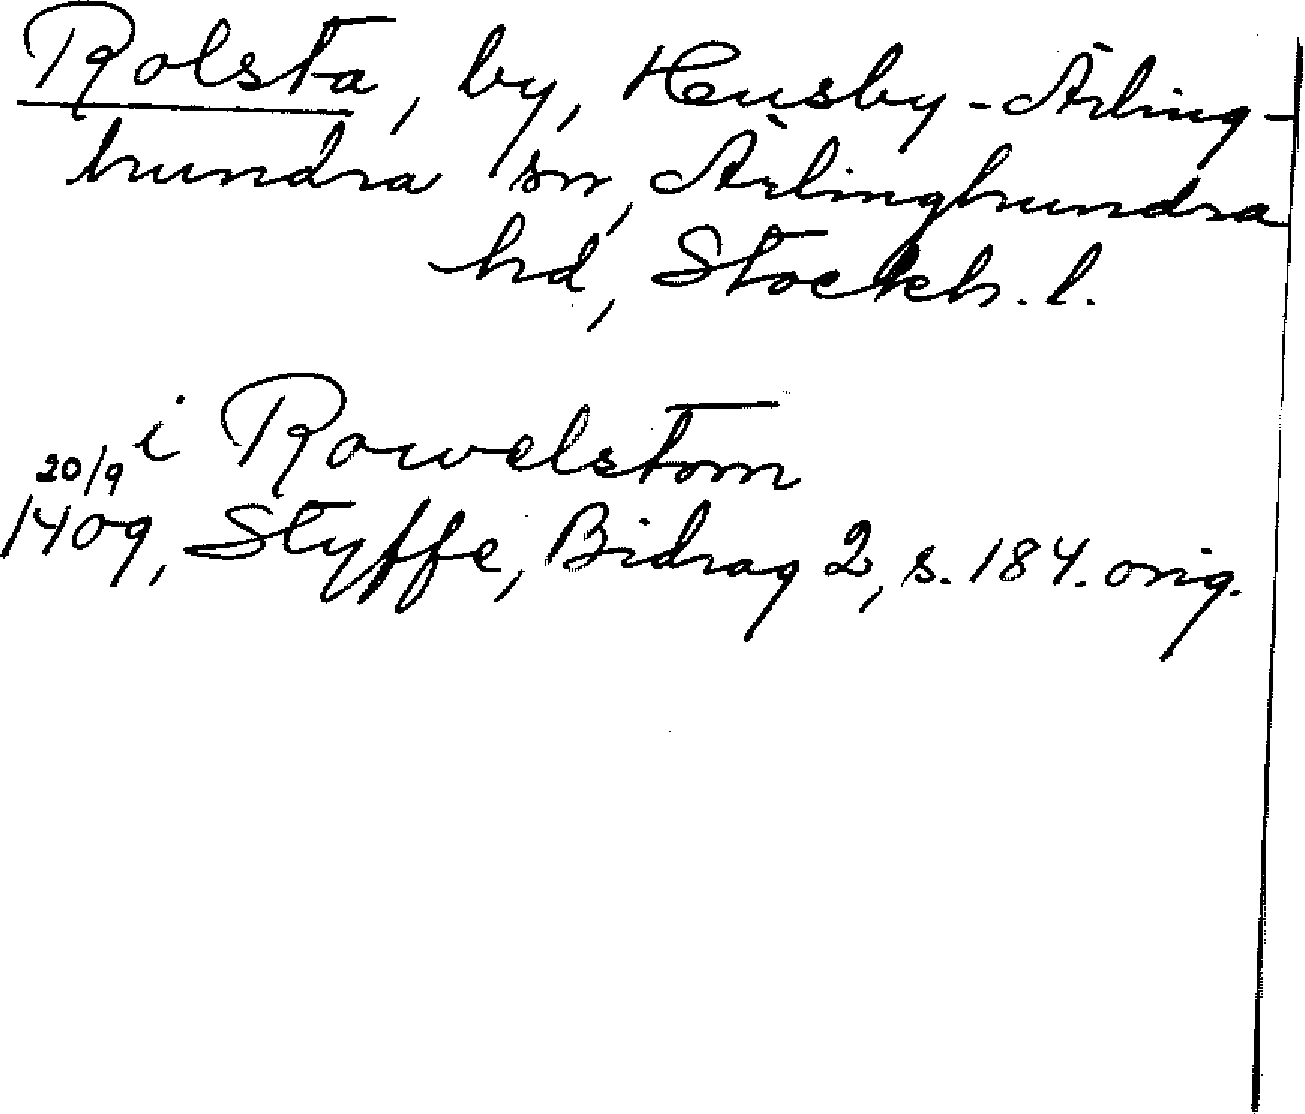 Rolsta, by, Husby-Ärling-
hundra sn, Ärlinghundra
hd, Stockh. l.
i Rowelstom
20/9
1409, Styffe, Bidrag 2, s. 184. orig.